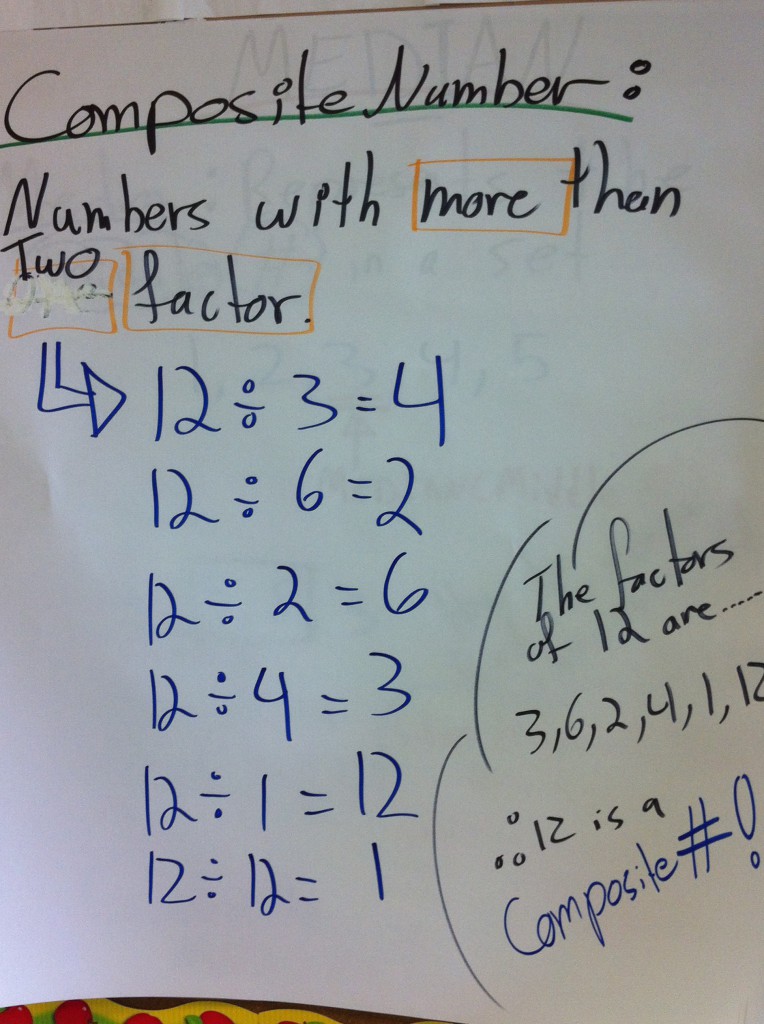 Composite Number:
Numbers with more than
Two factor.
12 ÷ 3 = 4
12 ÷ 6 = 2
12 ÷ 2 = 6
12 ÷ 4 = 3
12 ÷ 1 = 12
12 ÷ 12 = 1
The factors
of 12 are.....
3,6,2,4,1,12
∴ 12 is a
Composite #!